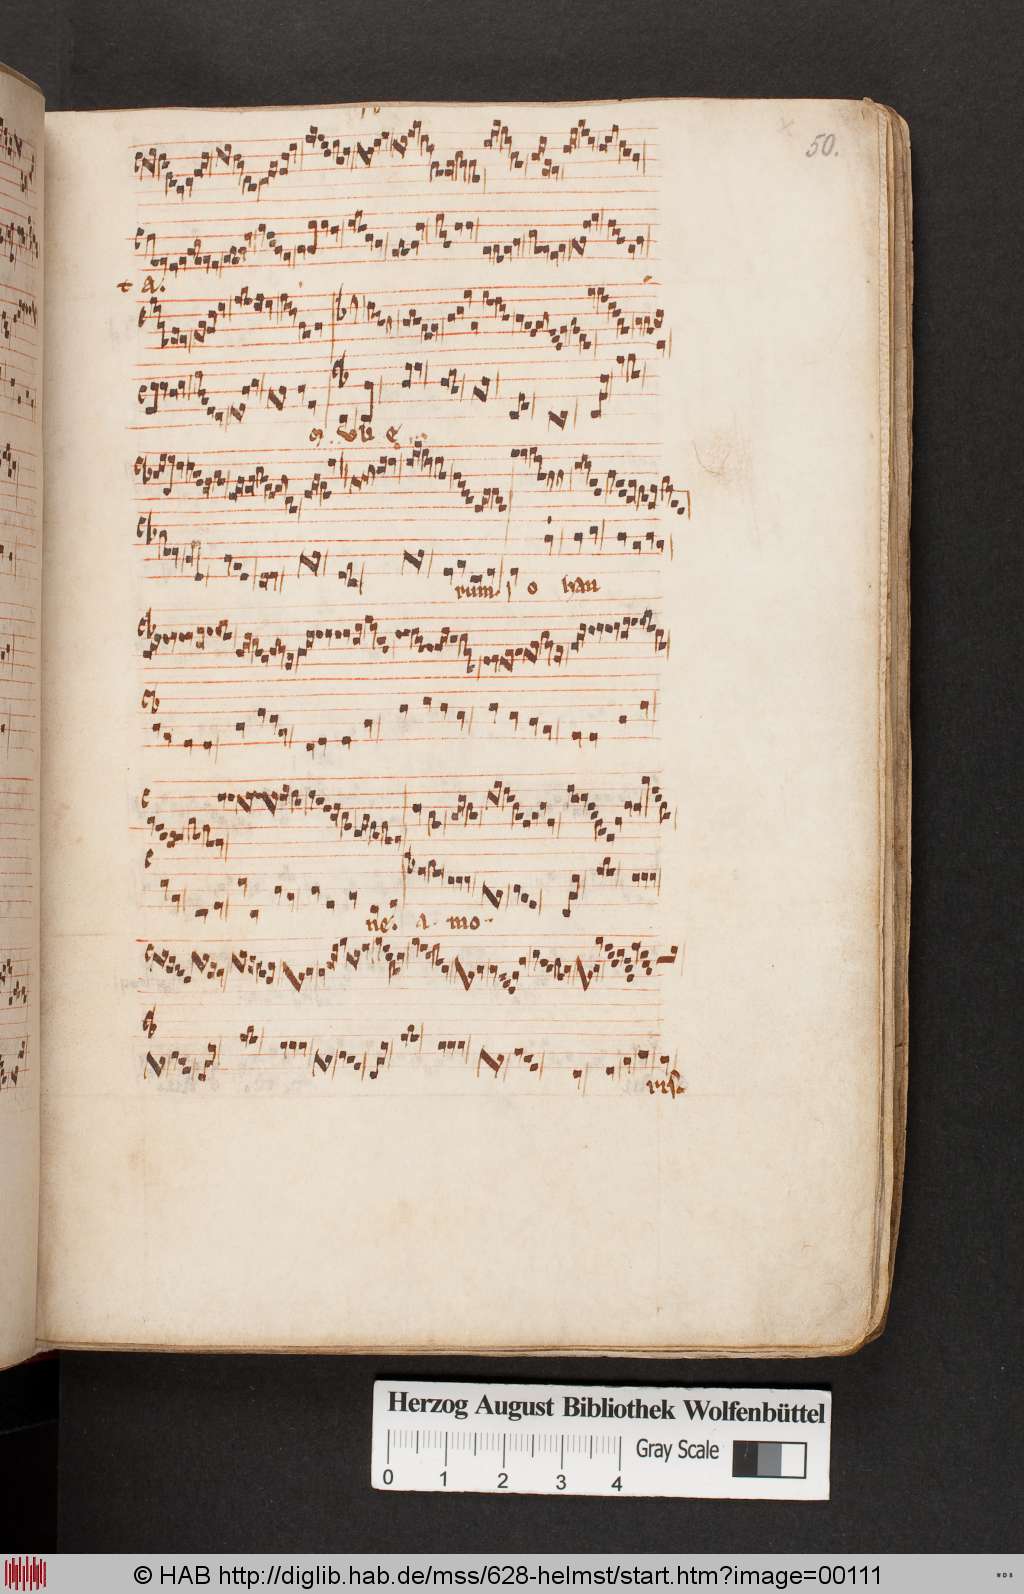 50.
ta.
rum. io han
ne. a mo
ris.
Herzog August Bibliothek Wolfenbüttel
Gray Scale
0 1 2 3 4
© HAB http://diglib.hab.de/mss/628-helmst/start.htm?image=00111